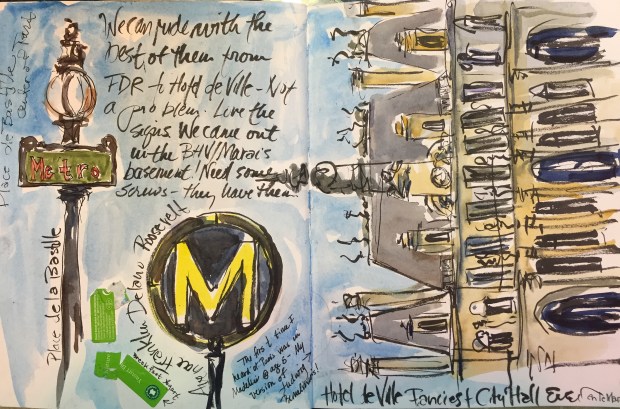 We can ride with the
best of them from
FDR to Hotel de Ville - Not
a problem. Love the
signs. We came out
in the BHV/Marais
basement! Need some
screws - they have them.
Metro
Place de la Bastille
Franklin Delano Roosevelt
M
The first time I
heard of Paris was in
@ age 6. My
version of
Hotel de Ville Fanciest City Hall Ever